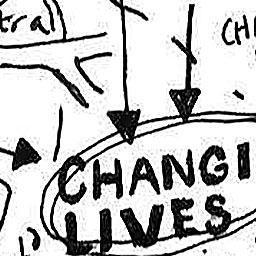 tral
CH
CHANGI
LIVES